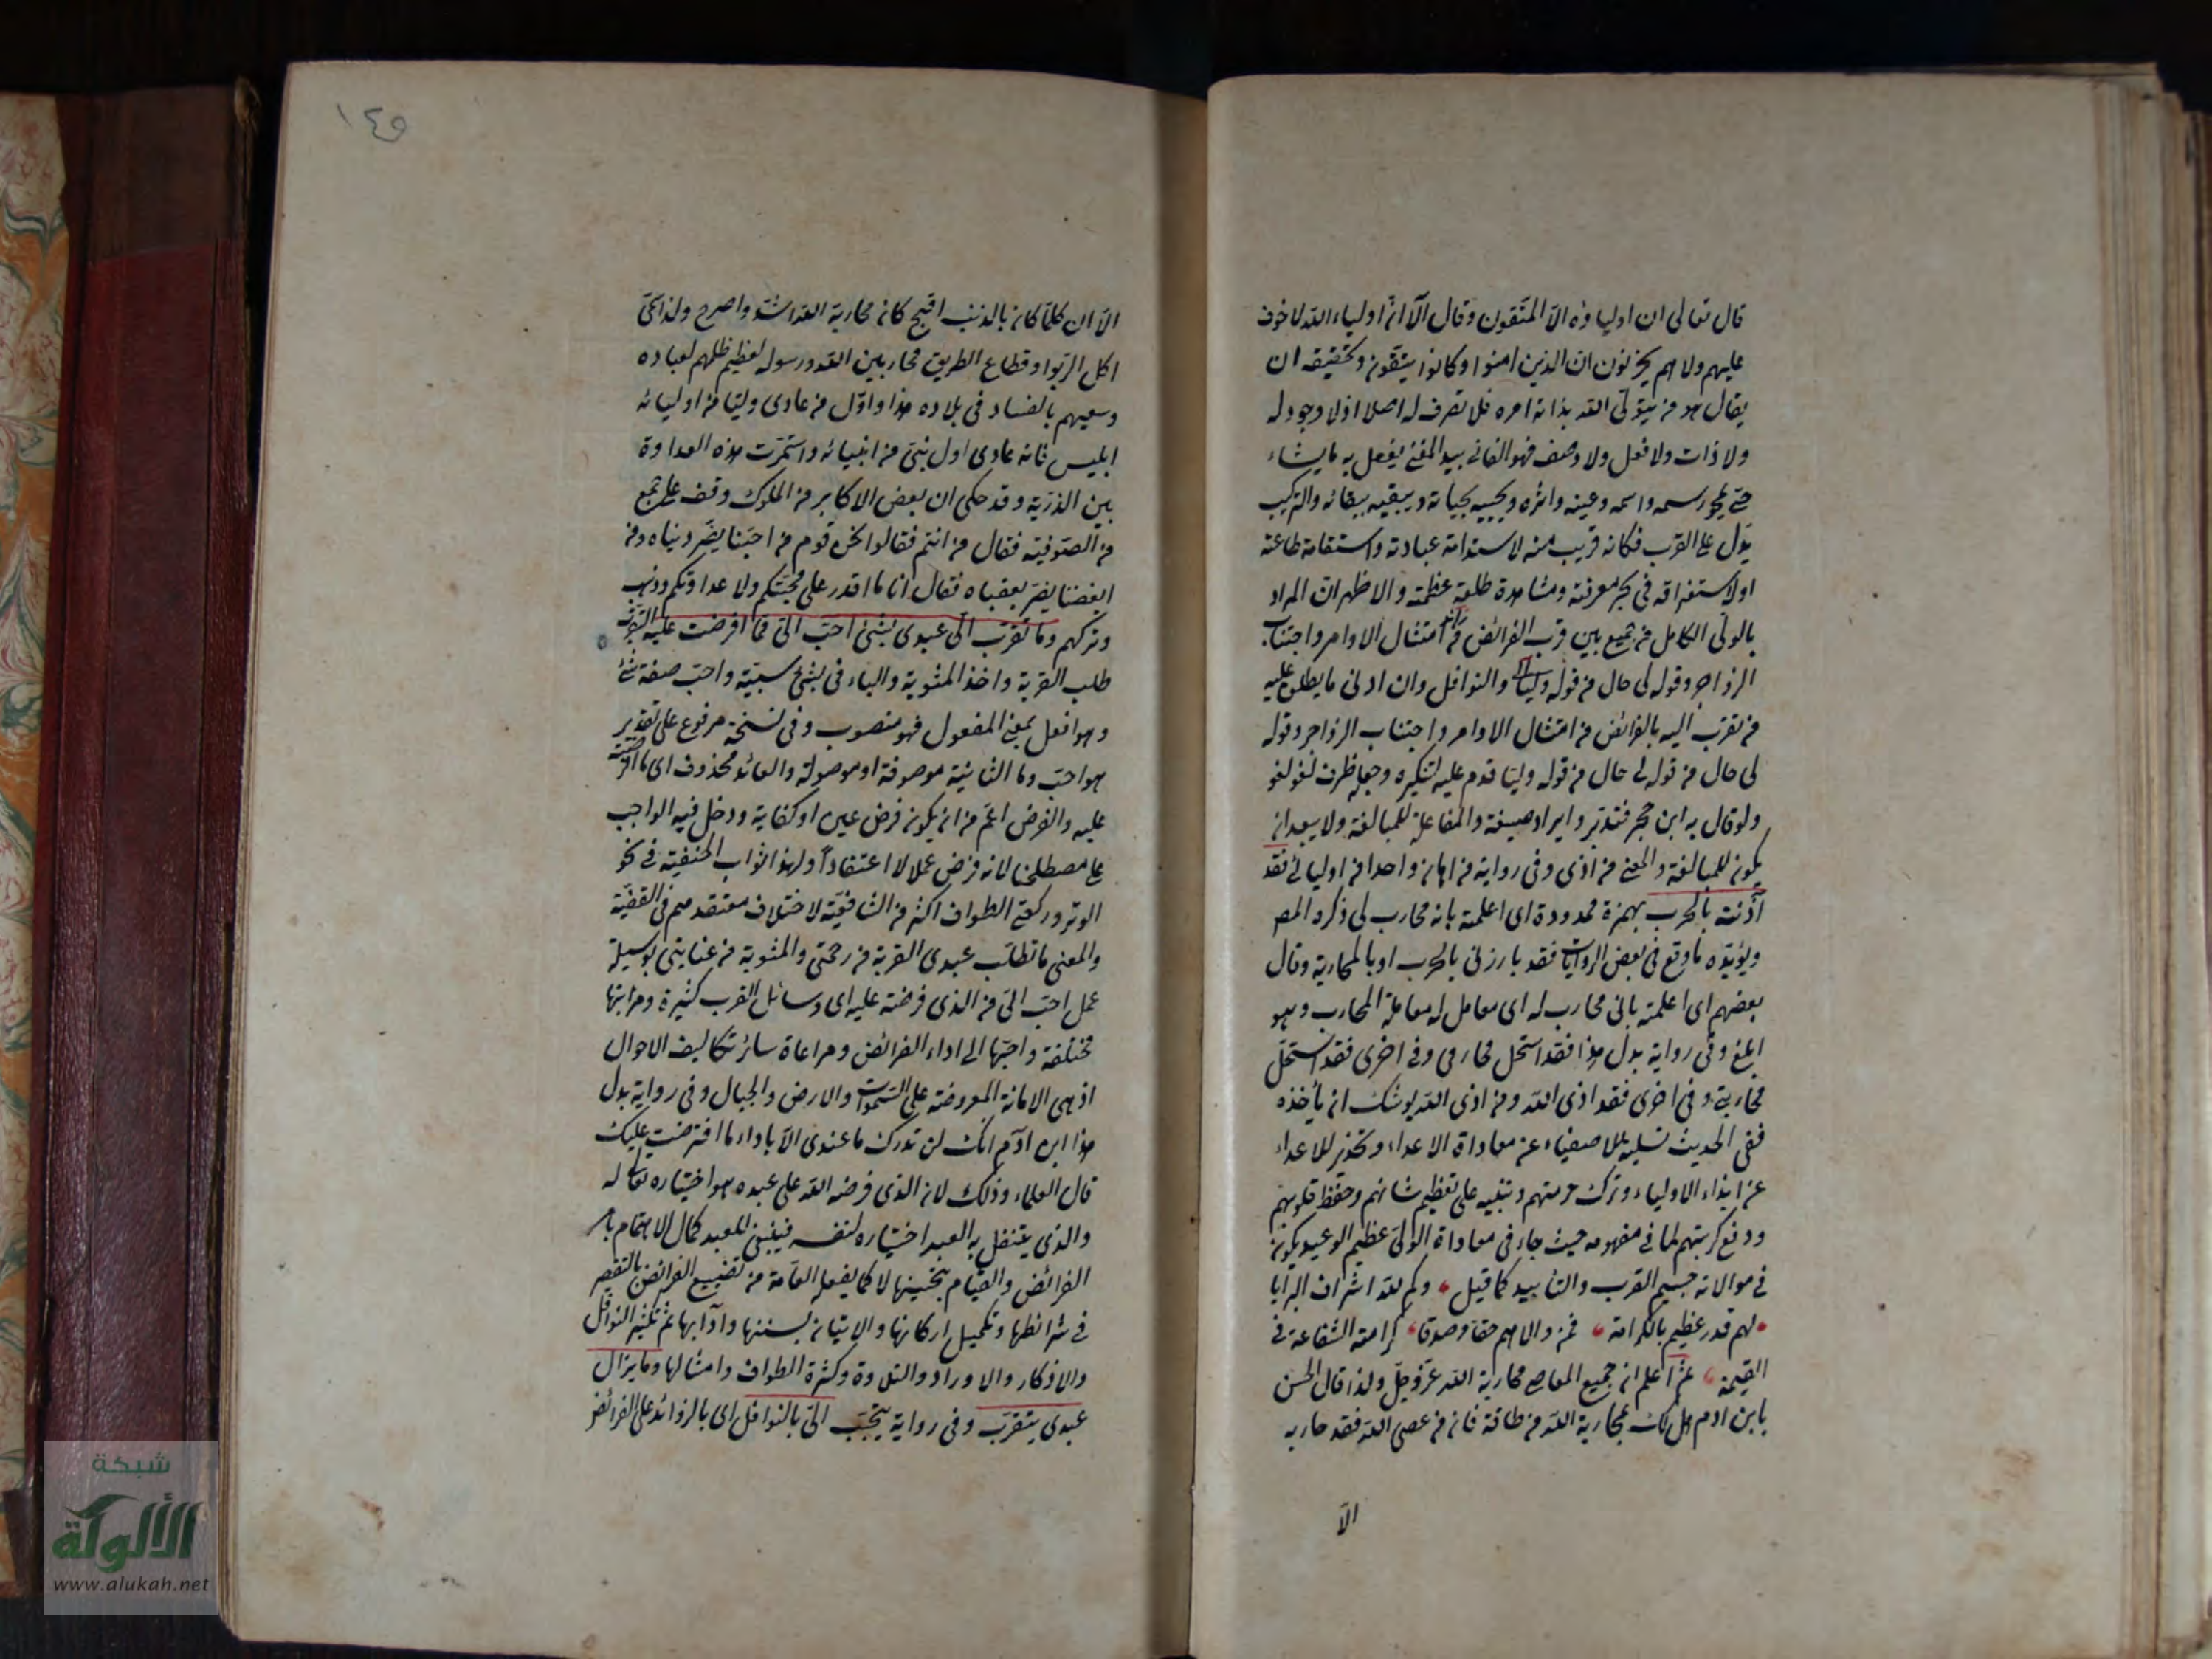 قال تعالى ان اولياؤه الا المتقون وقال ألا ان اولياء الله لا خوف
عليهم ولا هم يحزنون ان الذين امنوا وكانوا يتقون وتحقيقه ان
يقال هو من يتولى الله بذاته امره فلا تصرف له اصلا اذ لا وجود له
ولا ذات ولا فعل ولا وصف فهو الفاني بيد المفني يفعل به ما يشاء
حتى يمحو رسمه واسمه وعينه واثره ويحييه بحياته ويبقيه ببقائه والتركيب
يدل على القرب فكانه قريب منه لاستدامة عبادته واستقامة طاعته
او لاستغراقه في بحر معرفته ومشاهدة طلعة عظمته والاظهر ان المراد
بالولي الكامل من جمع بين قرب الفرائض من امتثال الاوامر واجتناب
الزواجر وقوله لي حال من قوله وليا والنوافل وان ادنى ما يطلق عليه
من تقرب اليه بالفرائض من امتثال الاوامر واجتناب الزواجر وقوله
لي حال من قوله لي حال من قوله وليا قدم عليه لتنكيره وجعله ظرف لغو لغو
ولو قال به ابن حجر فتدبر وايراد صيغة والمفاعلة للمبالغة ولا يبعد ان
يكون للمبالغة والمعنى من آذى وفي رواية من اهان واحدا من اوليائي فقد
آذنته بالحرب بهمزة ممدودة اى اعلمته بانه محارب لي ذكره المص
ويؤيده ما وقع في بعض الروايات فقد بارزني بالحرب او بالمحاربة وقال
بعضهم اى اعلمته باني محارب له اى معامل له معاملة المحارب وهو
ابلغ وفي رواية بدل هذا فقد استحل محارمي وفي اخرى فقد استحل
محاربتي وفي اخرى فقد اذى الله ومن اذى الله يوشك ان يأخذه
ففي الحديث تسلية للاصفياء عن معاداة الاعداء وتحذير للاعداء
عن ايذاء الاولياء وترك حرمتهم وتنبيه على تعظيم شانهم وحفظ قلوبهم
ودفع كربتهم لما في مفهومه حيث جاء في معاداة الولي عظيم الوعيد يكون
في موالاته جسيم القرب والتأييد كما قيل وكم لله اشراف البرايا
لهم قدر عظيم بالكرامة فمن والاهم حقا وصدقا كرامته الشفاعة في
القيمة ثم اعلم ان جميع المعاصى محاربة الله عز وجل ولذا قال الحسن
يا ابن ادم هل لك بمحاربة الله من طاقة فان من عصى الله فقد حاربه
الا
١٤٥
الا ان كلما كان بالذنب اقبح كان محاربة الله اشد واصرح ولذا سمى
اكل الربوا وقطاع الطريق محاربين الله ورسوله لعظيم ظلهم لعباده
وسعيهم بالفساد في بلاده هذا واول من عادى وليا من اوليائه
ابليس فانه عادى اول نبي من انبيائه واستمرت هذه العداوة
بين الذرية وقد حكى ان بعض الاكابر من الملوك وقف على جمع
من الصوفية فقال من انتم فقالوا نحن قوم من احبنا يضر دنياه ومن
ابغضنا يضر بعقباه فقال انا ما اقدر على محبتكم ولا عداوتكم وذهب
وتركهم وما تقرب الي عبدى بشئ احب الي مما افترضت عليه التقرب
طلب القربة واخذ المثوبة والباء في بشئ سببية واحب صفة شئ
وهو افعل بمعنى المفعول فهو منصوب وفي نسخة مرفوع على تقدير
هو احب وما الثانية موصوفة او موصولة والعائد محذوف اى ما افترضته
عليه والفرض اعم من ان يكون فرض عين او كفاية ودخل فيه الواجب
على مصطلحنا لانه فرض عملا لا اعتقادا ولهذا ثواب الحنفية في نحو
الوتر وركعتى الطواف اكثر من الشافعية لاختلاف معتقدهم في القضية
والمعنى ما تطلب عبدى القربة من رحمتي والمثوبة من عنايتي بوسيلة
عمل احب الي من الذى فرضته عليه اى وسائل القرب كثيرة ومراتبها
مختلفة واحبها الى اداء الفرائض ومراعاة سائر تكاليف الاحوال
اذ هى الامانة المعروضة على السموات والارض والجبال وفي رواية بدل
هذا ابن آدم انك لن تدرك ما عندى الا باداء ما افترضت عليك
قال العلماء وذلك لان الذى فرضه الله على عبده هو اختياره تعالى له
والذى يتنفل به العبد اختياره لنفسه فينبغي للعبد كمال الاهتمام بامر
الفرائض والقيام بتحسينها لا كما يفعله العامة من تضييع الفرائض بالتقصير
في شرائطها وتكميل اركانها والاتيان بسننها وآدابها ثم تكثير النوافل
والاذكار والاوراد والتلاوة وكثرة الطواف وامثالها وما يزال
عبدى يتقرب وفي رواية يتحبب الي بالنوافل اى بالزوائد على الفرائض
شبكة
الألوكة
www.alukah.net